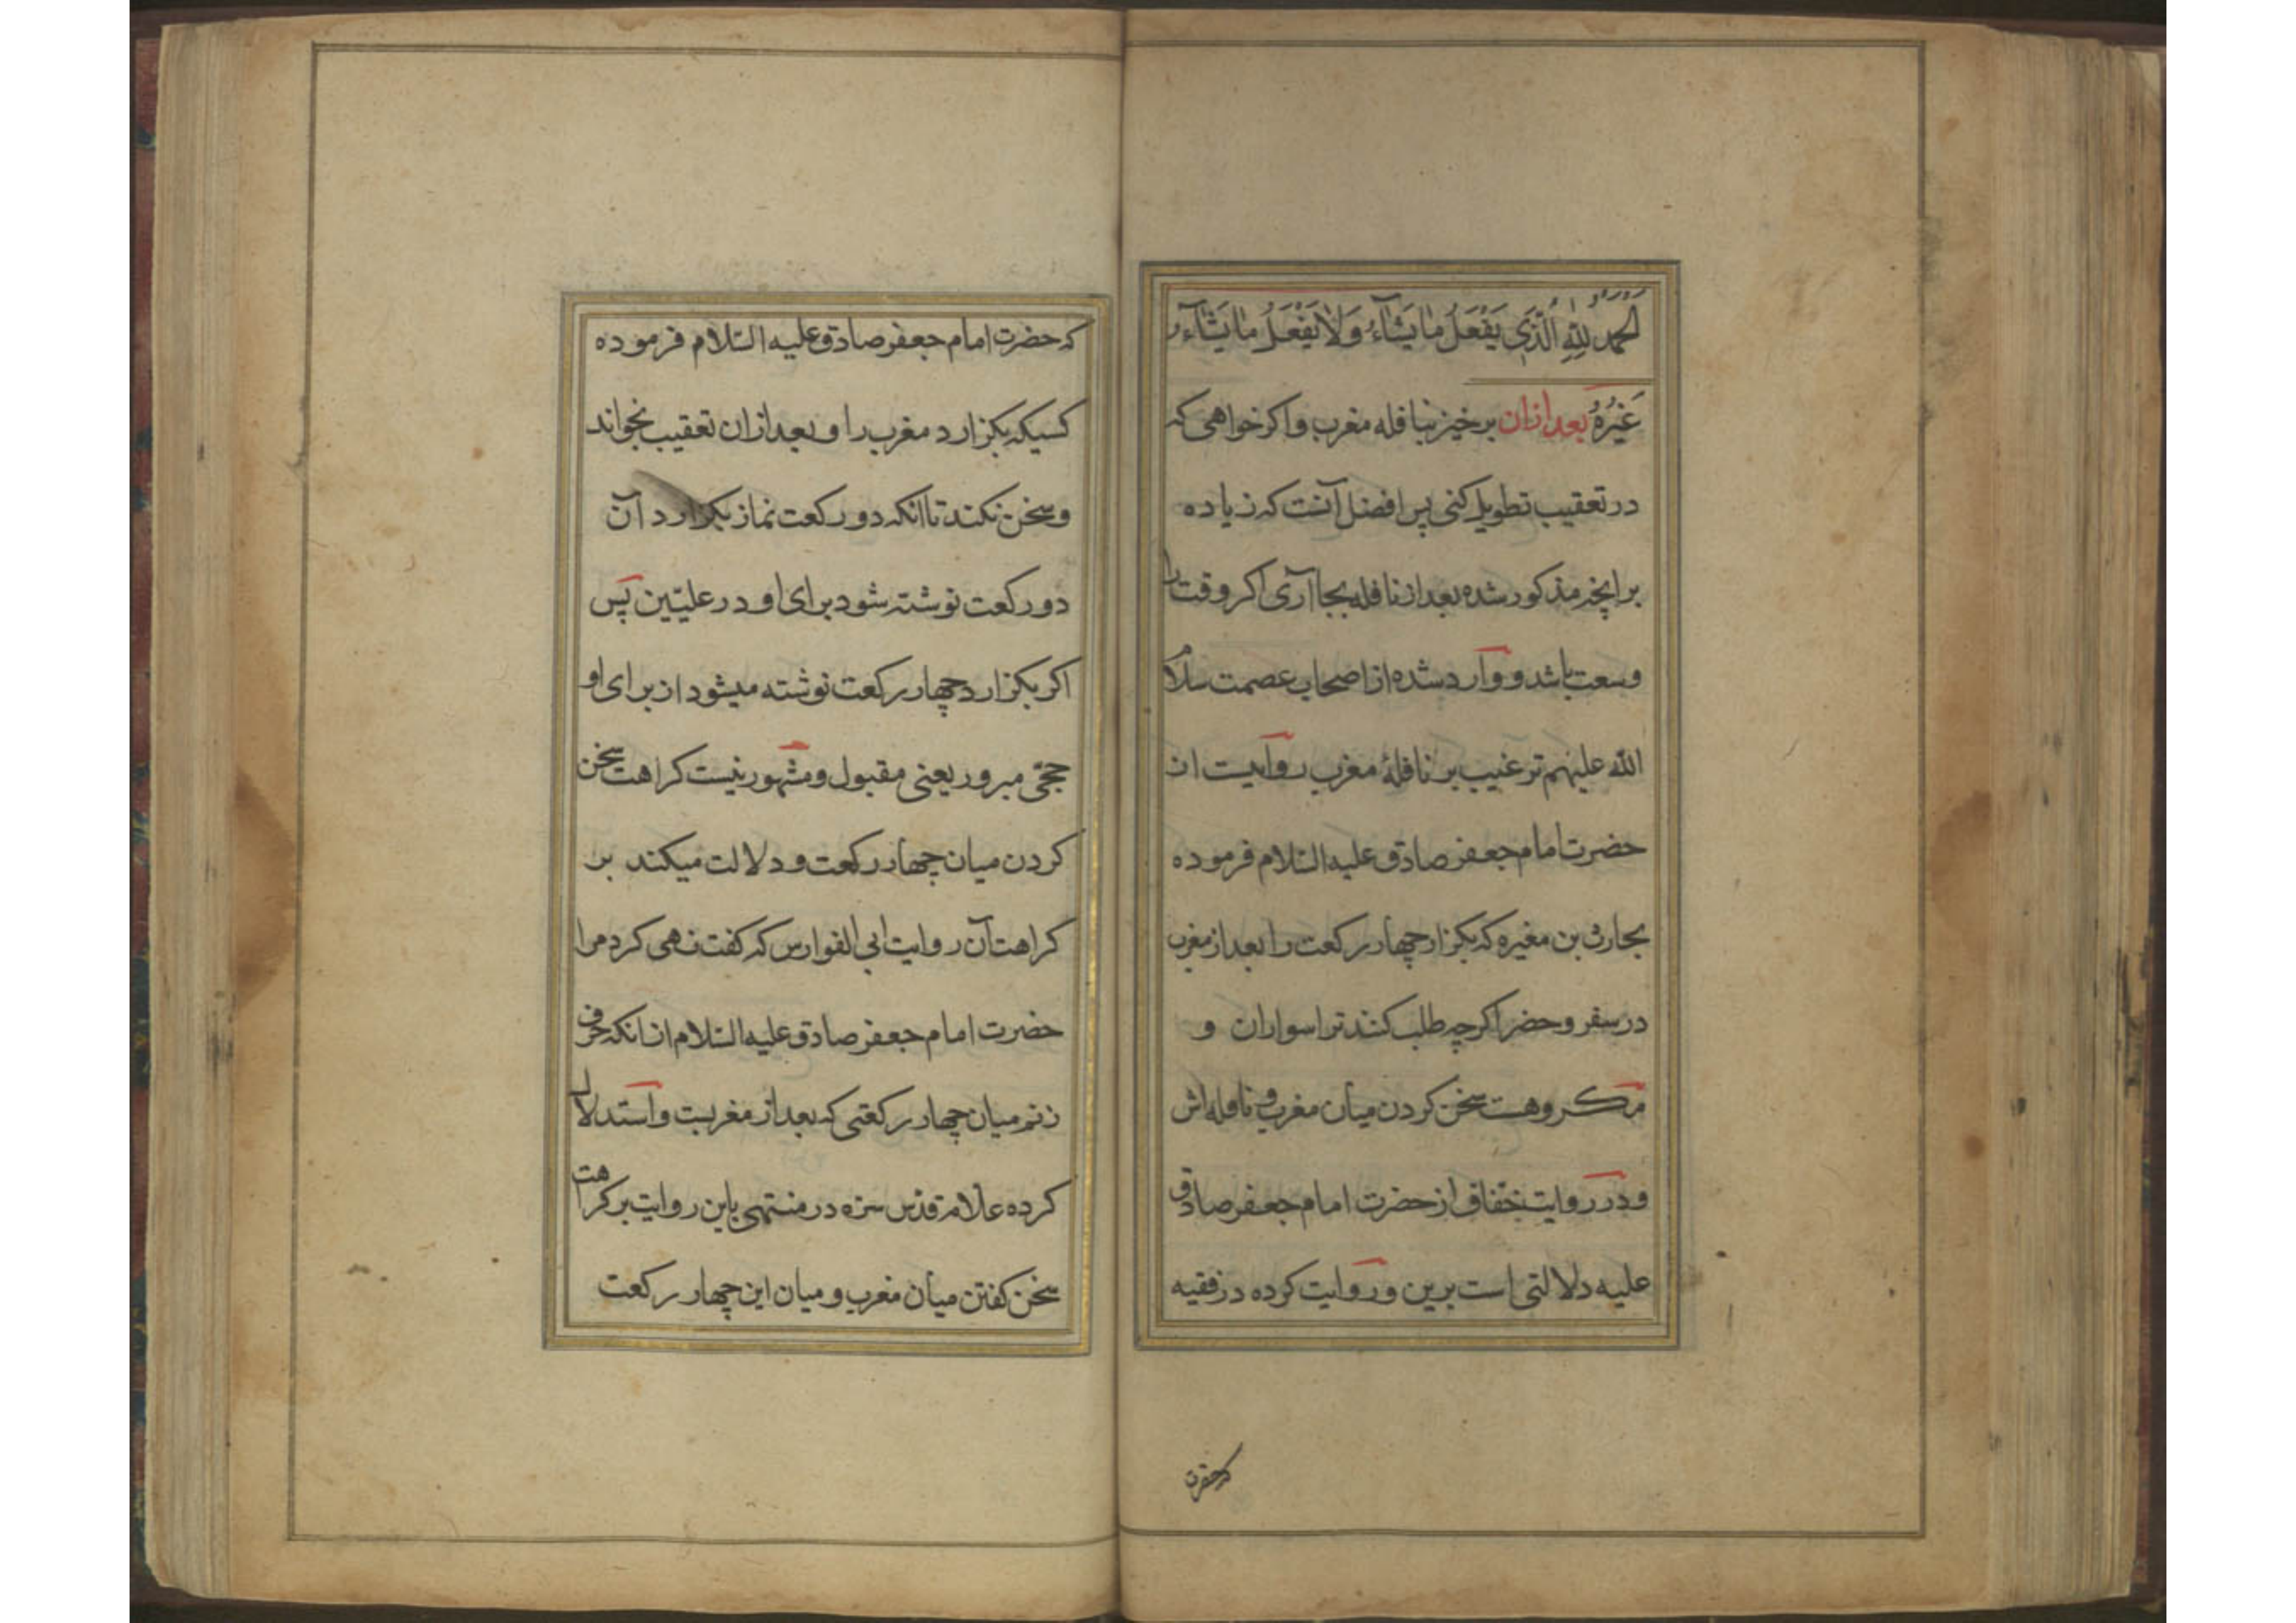 اَلْحَمْدُ لِلّٰهِ الَّذِي يَفْعَلُ مٰا يَشٰآءُ وَلٰا يَفْعَلُ مٰا يَشٰآءُ
غَيْرُهُ بعد ازان برخیز بنافله مغرب و اکر خواهی که
در تعقیب تطویل کنی پس افضل آنست که زیاده
برانچه مذکور شده بعد از نافله بجا آری اکر وقت را
وسعت باشد و وارد شده از اصحاب عصمت سلام
الله علیهم ترغیب بر نافلهٔ مغرب روایت از
حضرت امام جعفر صادق علیه السّلام فرموده
بحارث بن مغیره که بکزار چهار رکعت را بعد از مغرب
در سفر و حضر اکرچه طلب کنند ترا سواران و
مکروهست سخن کردن میان مغرب و نافله اش
و در روایت خفاف از حضرت امام جعفر صادق
علیه دلالتی است برین و روایت کرده در فقیه
که حضرت
که حضرت امام جعفر صادق علیه السّلام فرموده
کسیکه بکزارد مغرب را و بعد ازان تعقیب بخواند
و سخن نکند تا انکه دو رکعت نماز بکزارد آن
دو رکعت نوشته شود برای او در علیّین پس
اکر بکزارد چهار رکعت نوشته میشود از برای او
حجّی مبرور یعنی مقبول و مشهور نیست کراهت سخن
کردن میان چهار رکعت و دلالت میکند بر
کراهت آن روایت ابی الفوارس که کفت نهی کرد مرا
حضرت امام جعفر صادق علیه السّلام از انکه حرف
زنم میان چهار رکعتی که بعد از مغربست و استدلال
کرده علامه قدس سره در منتهی باین روایت بر کراهت
سخن کفتن میان مغرب و میان این چهار رکعت